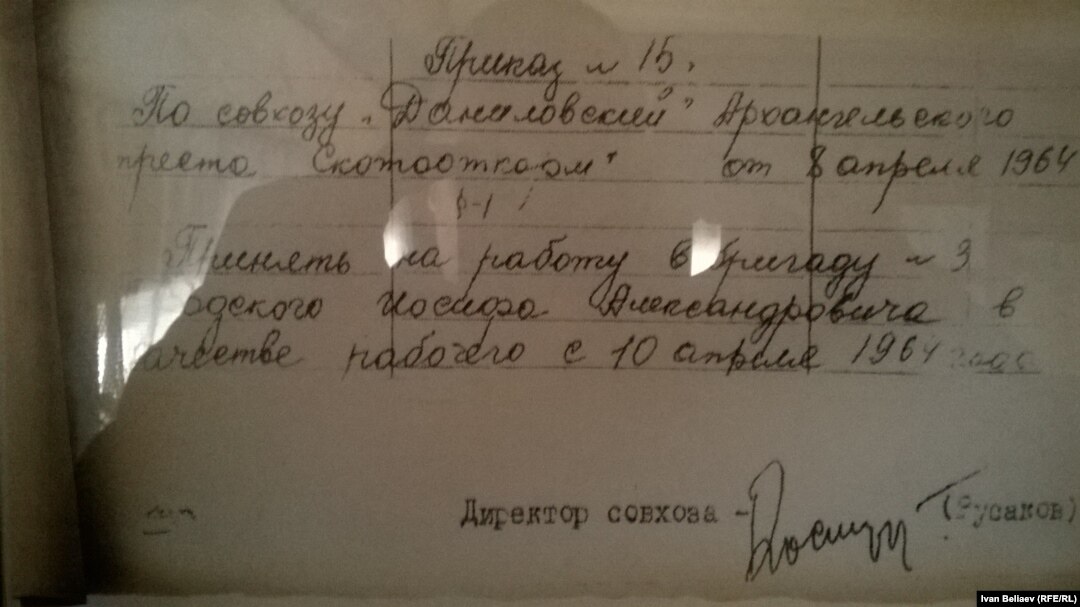 Приказ № 15.
По совхозу „Даниловский" Архангельского
треста Скотооткорм" от 8 апреля 1964
§-1
Принять на работу в бригаду № 3
одского Иосифа Александровича в
ачестве рабочего с 10 апреля 1964 года
Директор совхоза - (Русаков)
Ivan Beliaev (RFE/RL)